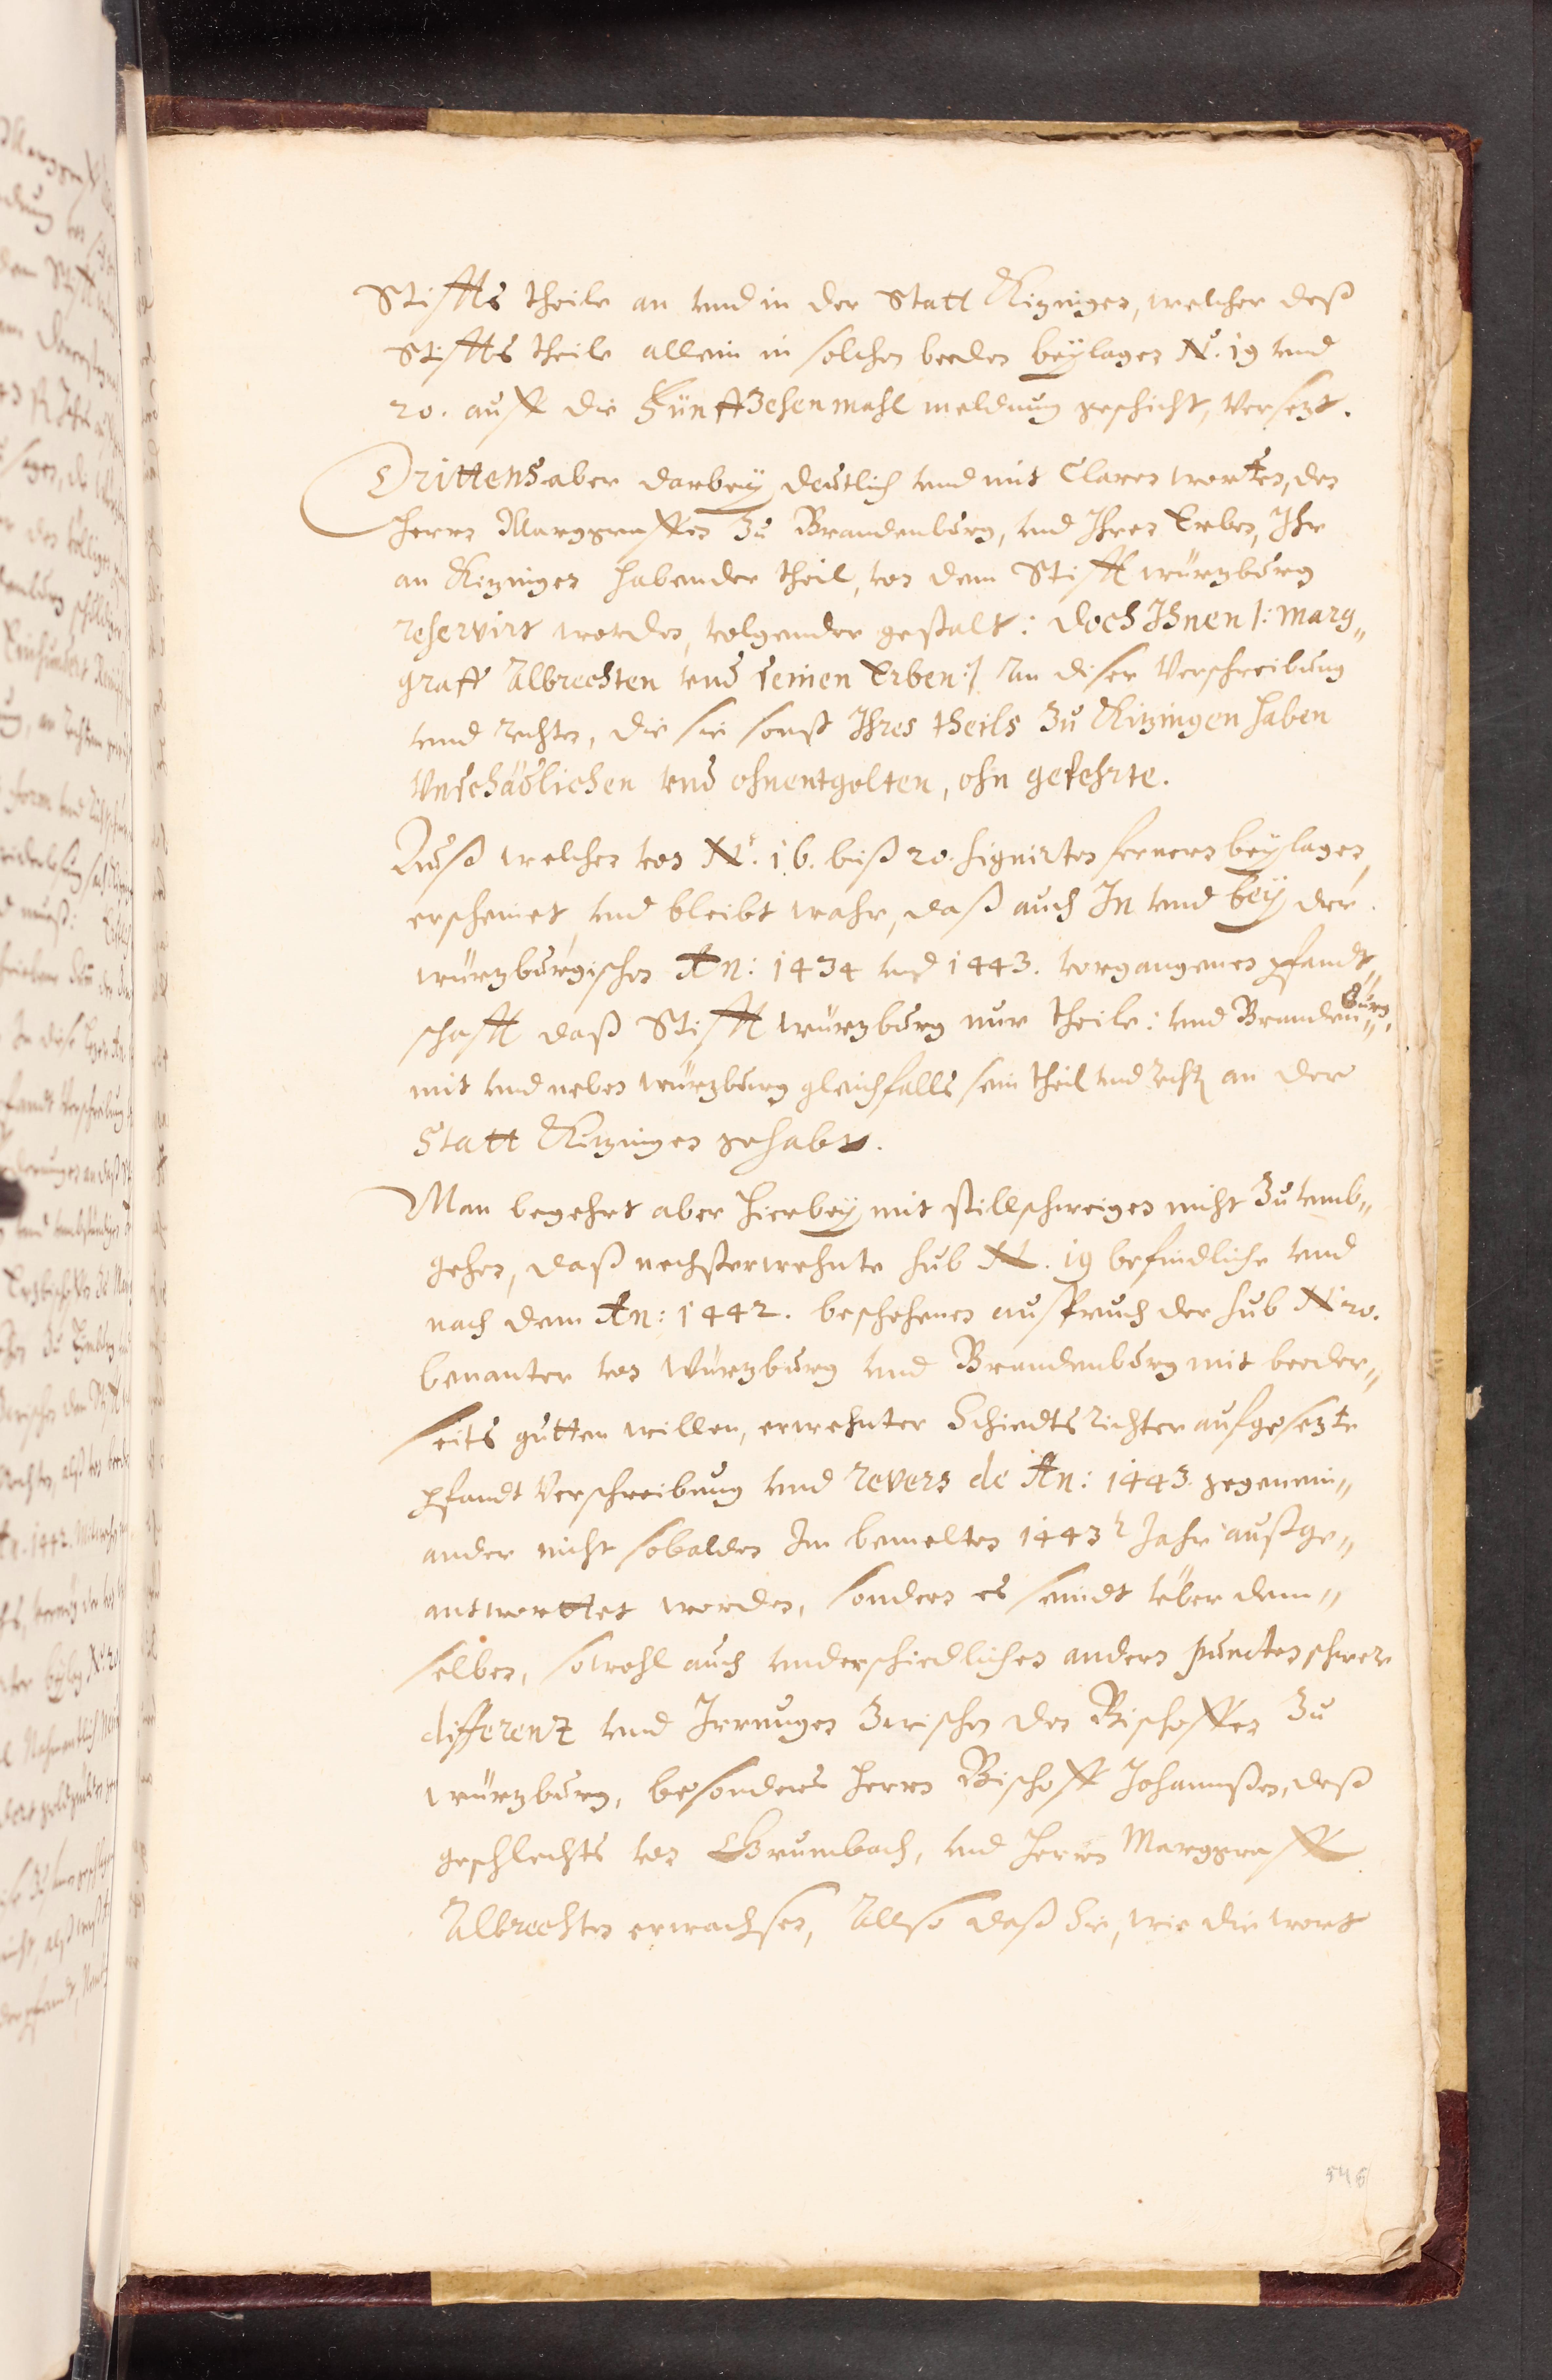 Stiffts theile an vnd in der Statt Kitzingen, welcher deß
Stiffts theile allein in solchen beeden beylagen No. 19 vnd
20. auff die Fünffzehenmahl meldung geschicht, Versezt.
Drittens aber darbey deütlich vnd mit Claren wortten, den
Herrn Marggraffen Zu Brandenburg, vnd Ihren Erben, Ihr
an Kitzingen habender theil, von dem Stifft würtzburg
reservirt worden, volgender gestalt: doch Ihnen /: Marg„
graff Albrechten vnd seinen Erben :/ An diser Verschreibung
vnd rechten, die sie sonst Ihres theils Zu Kitzingen haben
Vnschädlichen vnd ohnentgolten, ohn gefehrte.
Auß welchen von No. 16. biß 20. signirten fernern beylagen,
erscheinet, vnd bleibt wahr, daß auch In vnd bey der
würtzburgischen An: 1434 vnd 1443. vorgangenen pfandt„
schafft daß Stifft würtzburg nur theile: vnd Brandenburg,
mit vnd neben würtzburg gleichfalls sein theil vnd recht an der
Statt Kitzingen gehabt.
Man begehrt aber hierbey mit stillschweigen nicht Zu vmb„
gehen, daß nechsterwehnte sub N. 19 befindliche vnd
nach dem An: 1442. beschehenen außspruch der sub No 20.
benanter von Würtzburg vnd Brandenburg mit beeder„
seits gutten willen, erwehnter Schiedts Richter aufgesezte
pfandt Verschreibung vnd revers de An: 1443. gegenein„
ander nicht sobalden Im bemelten 1443t Jahr außge„
antworttet worden, sondern es seindt über dem„
selben, sowohl auch vnderschiedlichen andern puncten schwere
differenz vnd Irrungen Zwischen den Bischoffen Zu
würtzburg, besonders Herrn Bischoff Johannßen, deß
geschlechts von Grumbach, vnd Herrn Marggraff
Albrechten erwachsen, Allso daß Sie, wie die wort